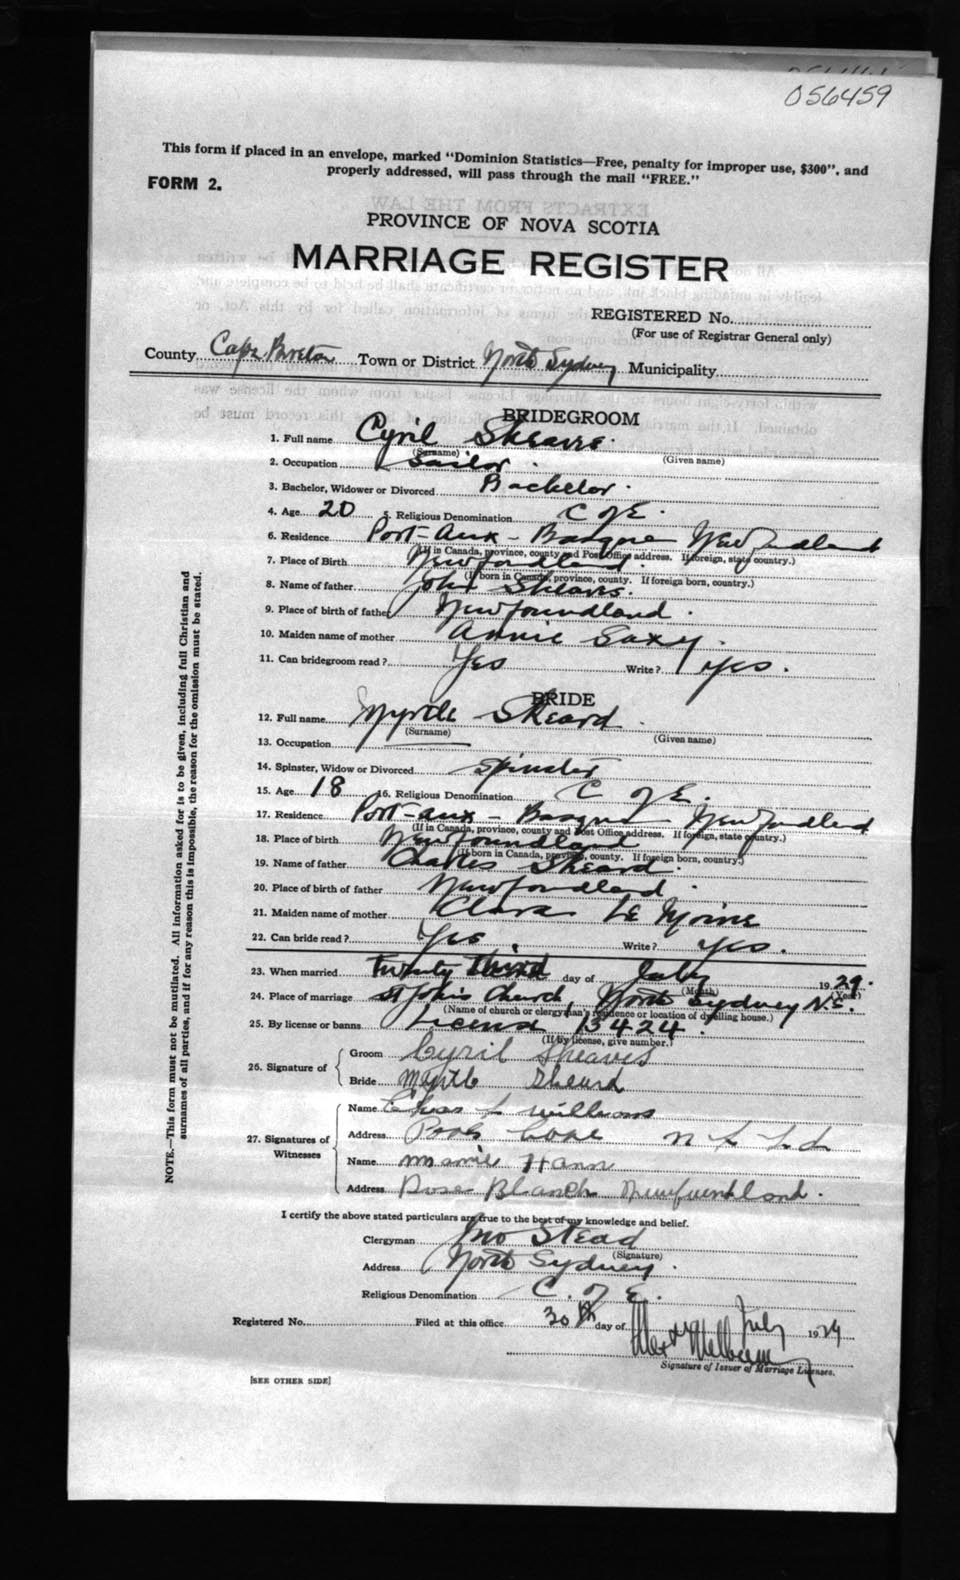 056459
This form if placed in an envelope, marked "Dominion Statistics—Free, penalty for improper use, $300", and
properly addressed, will pass through the mail "FREE."
FORM 2.
PROVINCE OF NOVA SCOTIA
MARRIAGE REGISTER
REGISTERED No.
(For use of Registrar General only)
County Cape Breton Town or District North Sydney Municipality
BRIDEGROOM
1. Full name Cyril Sheaves.
(Surname) (Given name)
2. Occupation Sailor.
3. Bachelor, Widower or Divorced Bachelor.
4. Age 20 5. Religious Denomination C of E.
6. Residence Port-aux-Basque Newfoundland
(If in Canada, province, county and Post Office address. If foreign, state country.)
7. Place of Birth Newfoundland.
(If born in Canada, province, county. If foreign born, country.)
8. Name of father John Sheaves.
9. Place of birth of father Newfoundland.
10. Maiden name of mother Annie Saxy.
11. Can bridegroom read? Yes Write? Yes.
BRIDE
12. Full name Myrtle Sheard.
(Surname) (Given name)
13. Occupation
14. Spinster, Widow or Divorced Spinster
15. Age 18 16. Religious Denomination C of E.
17. Residence Port-aux-Basque Newfoundland
(If in Canada, province, county and Post Office address. If foreign, state country.)
18. Place of birth Newfoundland
(If born in Canada, province, county. If foreign born, country.)
19. Name of father Charles Sheard.
20. Place of birth of father Newfoundland.
21. Maiden name of mother Clara Le Moine
22. Can bride read? Yes. Write? Yes.
23. When married Twenty Third day of July 1929.
(Month) (Year)
24. Place of marriage St John's Church, North Sydney N.S.
(Name of church or clergyman's residence or location of dwelling house.)
25. By license or banns License 13424.
(If by license, give number.)
26. Signature of Groom Cyril Sheaves
Bride Myrtle Sheard
27. Signatures of Witnesses Name Chas L Williams
Address Pools Cove N F L D
Name Mamie Hann
Address Rose Blanch Newfoundland.
I certify the above stated particulars are true to the best of my knowledge and belief.
Clergyman Stead
(Signature)
Address North Sydney.
Religious Denomination C. of E.
Registered No. Filed at this office 30th day of July 1929
Signature of Issuer of Marriage Licenses.
[SEE OTHER SIDE]
NOTE.—This form must not be mutilated. All information asked for is to be given, including full Christian and
surnames of all parties, and if for any reason this is impossible, the reason for the omission must be stated.